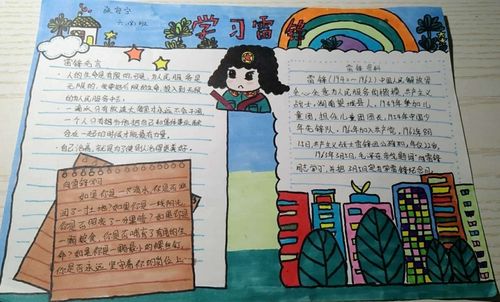 学习雷锋
六(4)班
雷锋名言
人的生命是有限的,可是,为人民服务是
无限的,我要把有限的生命,投入到无限
的为人民服务中去。
一滴水只有放进大海里才永远不会干涸,
一个人只有当他把自己和集体事业融
合在一起的时候才能最有力量。
自己活着,就是为了使别人过得更美好。
向雷锋学习
如果你是一滴水,你是否滋
润了一寸土地?如果你是一线阳光,
你是否照亮了一分黑暗?如果你是
一颗粮食,你是否哺育了有用的生
命?如果你是一颗最小的螺丝钉,
你是否永远坚守着你的岗位上
雷锋资料
雷锋(1940—1962)中国人民解放军
全心全意为人民服务的楷模,共产主义
战士。湖南望城县人,1949年参加儿
童团,担任儿童团团长,1954年中国少
年先锋队,1960年加入共产党,1962年8月
15日,共产主义战士雷锋因公殉职,年仅22
1963年3月5日,毛泽东亲笔题词"向雷锋
同志学习",并把3月5日定为学雷锋纪念日。